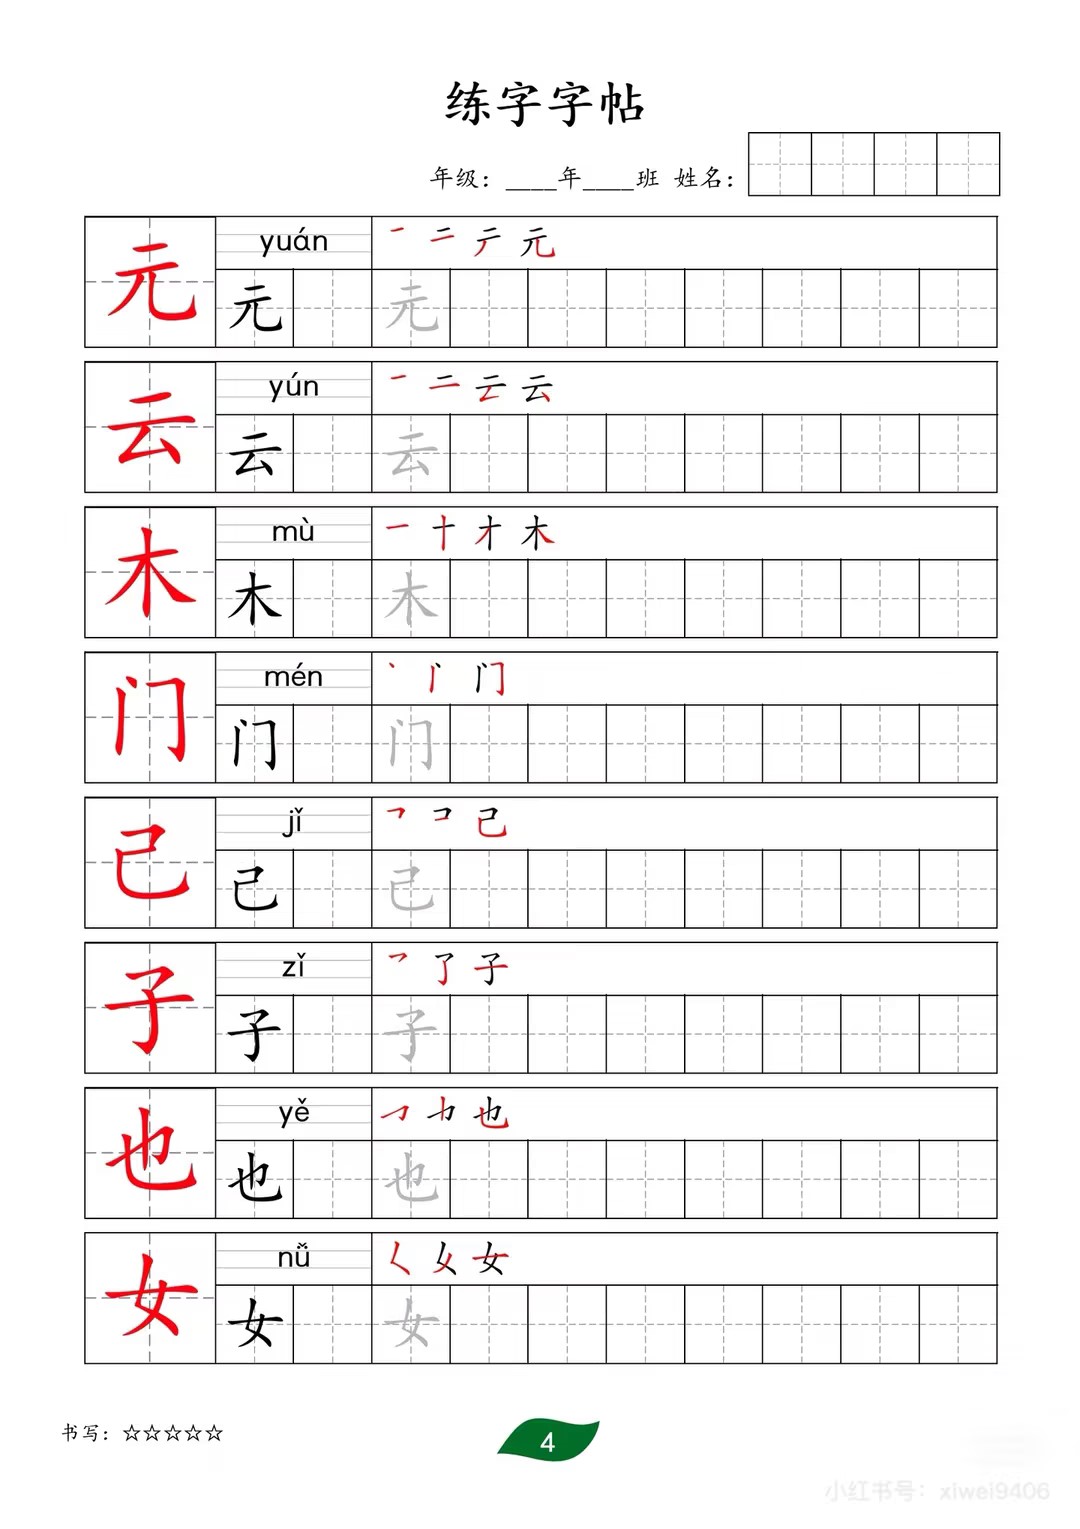 练字字帖
年级：____年____班 姓名：
元 yuán 一 二 テ 元
元 元
云 yún 一 二 云 云
云 云
木 mù 一 十 才 木
木 木
门 mén 丶 丨 门
门 门
己 jǐ ㇕ コ 己
己 己
子 zǐ 乛 了 子
子 子
也 yě ㇆ 也
也 也
女 nǚ く 女 女
女 女
书写：☆☆☆☆☆
4
小红书号：xiwei9406